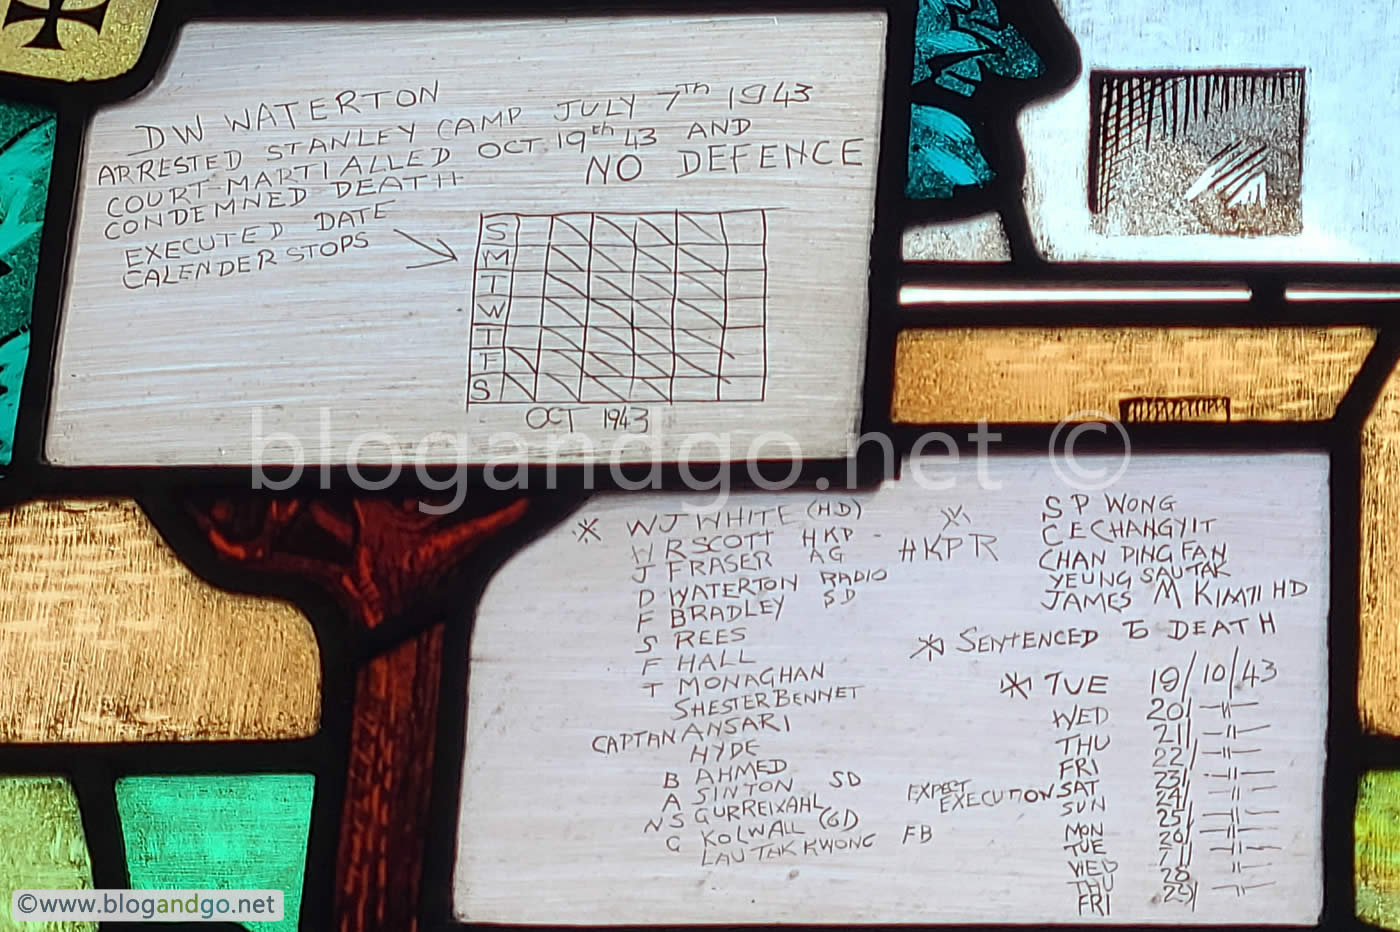 DW WATERTON
ARRESTED STANLEY CAMP JULY 7TH 1943
COURT-MARTIALLED OCT. 19th 43 AND
CONDEMNED DEATH NO DEFENCE
EXECUTED DATE
CALENDER STOPS
S
M
T
W
T
F
S
OCT 1943
blogandgo.net ©
WJ WHITE (HD)
W R SCOTT HKP
J FRASER AG
D WATERTON RADIO
F BRADLEY SD
S REES
F HALL
T MONAGHAN
SHESTER BENNET
CAPTAN ANSARI
HYDE
B AHMED
A SINTON SD
N S GURREIXAHL
G KOLWALL (GD)
LAU TAK KWONG FB
HKPR
S P WONG
C E CHANGYIT
CHAN PING FAN
YEUNG SAU TAK
JAMES M KIMTI HD
SENTENCED TO DEATH
TUE 19/10/43
WED 20/
THU 21/
FRI 22/
EXPECT EXECUTION SAT 23/
SUN 24/
MON 25/
TUE 26/
WED
THU 28
FRI 29/
©www.blogandgo.net